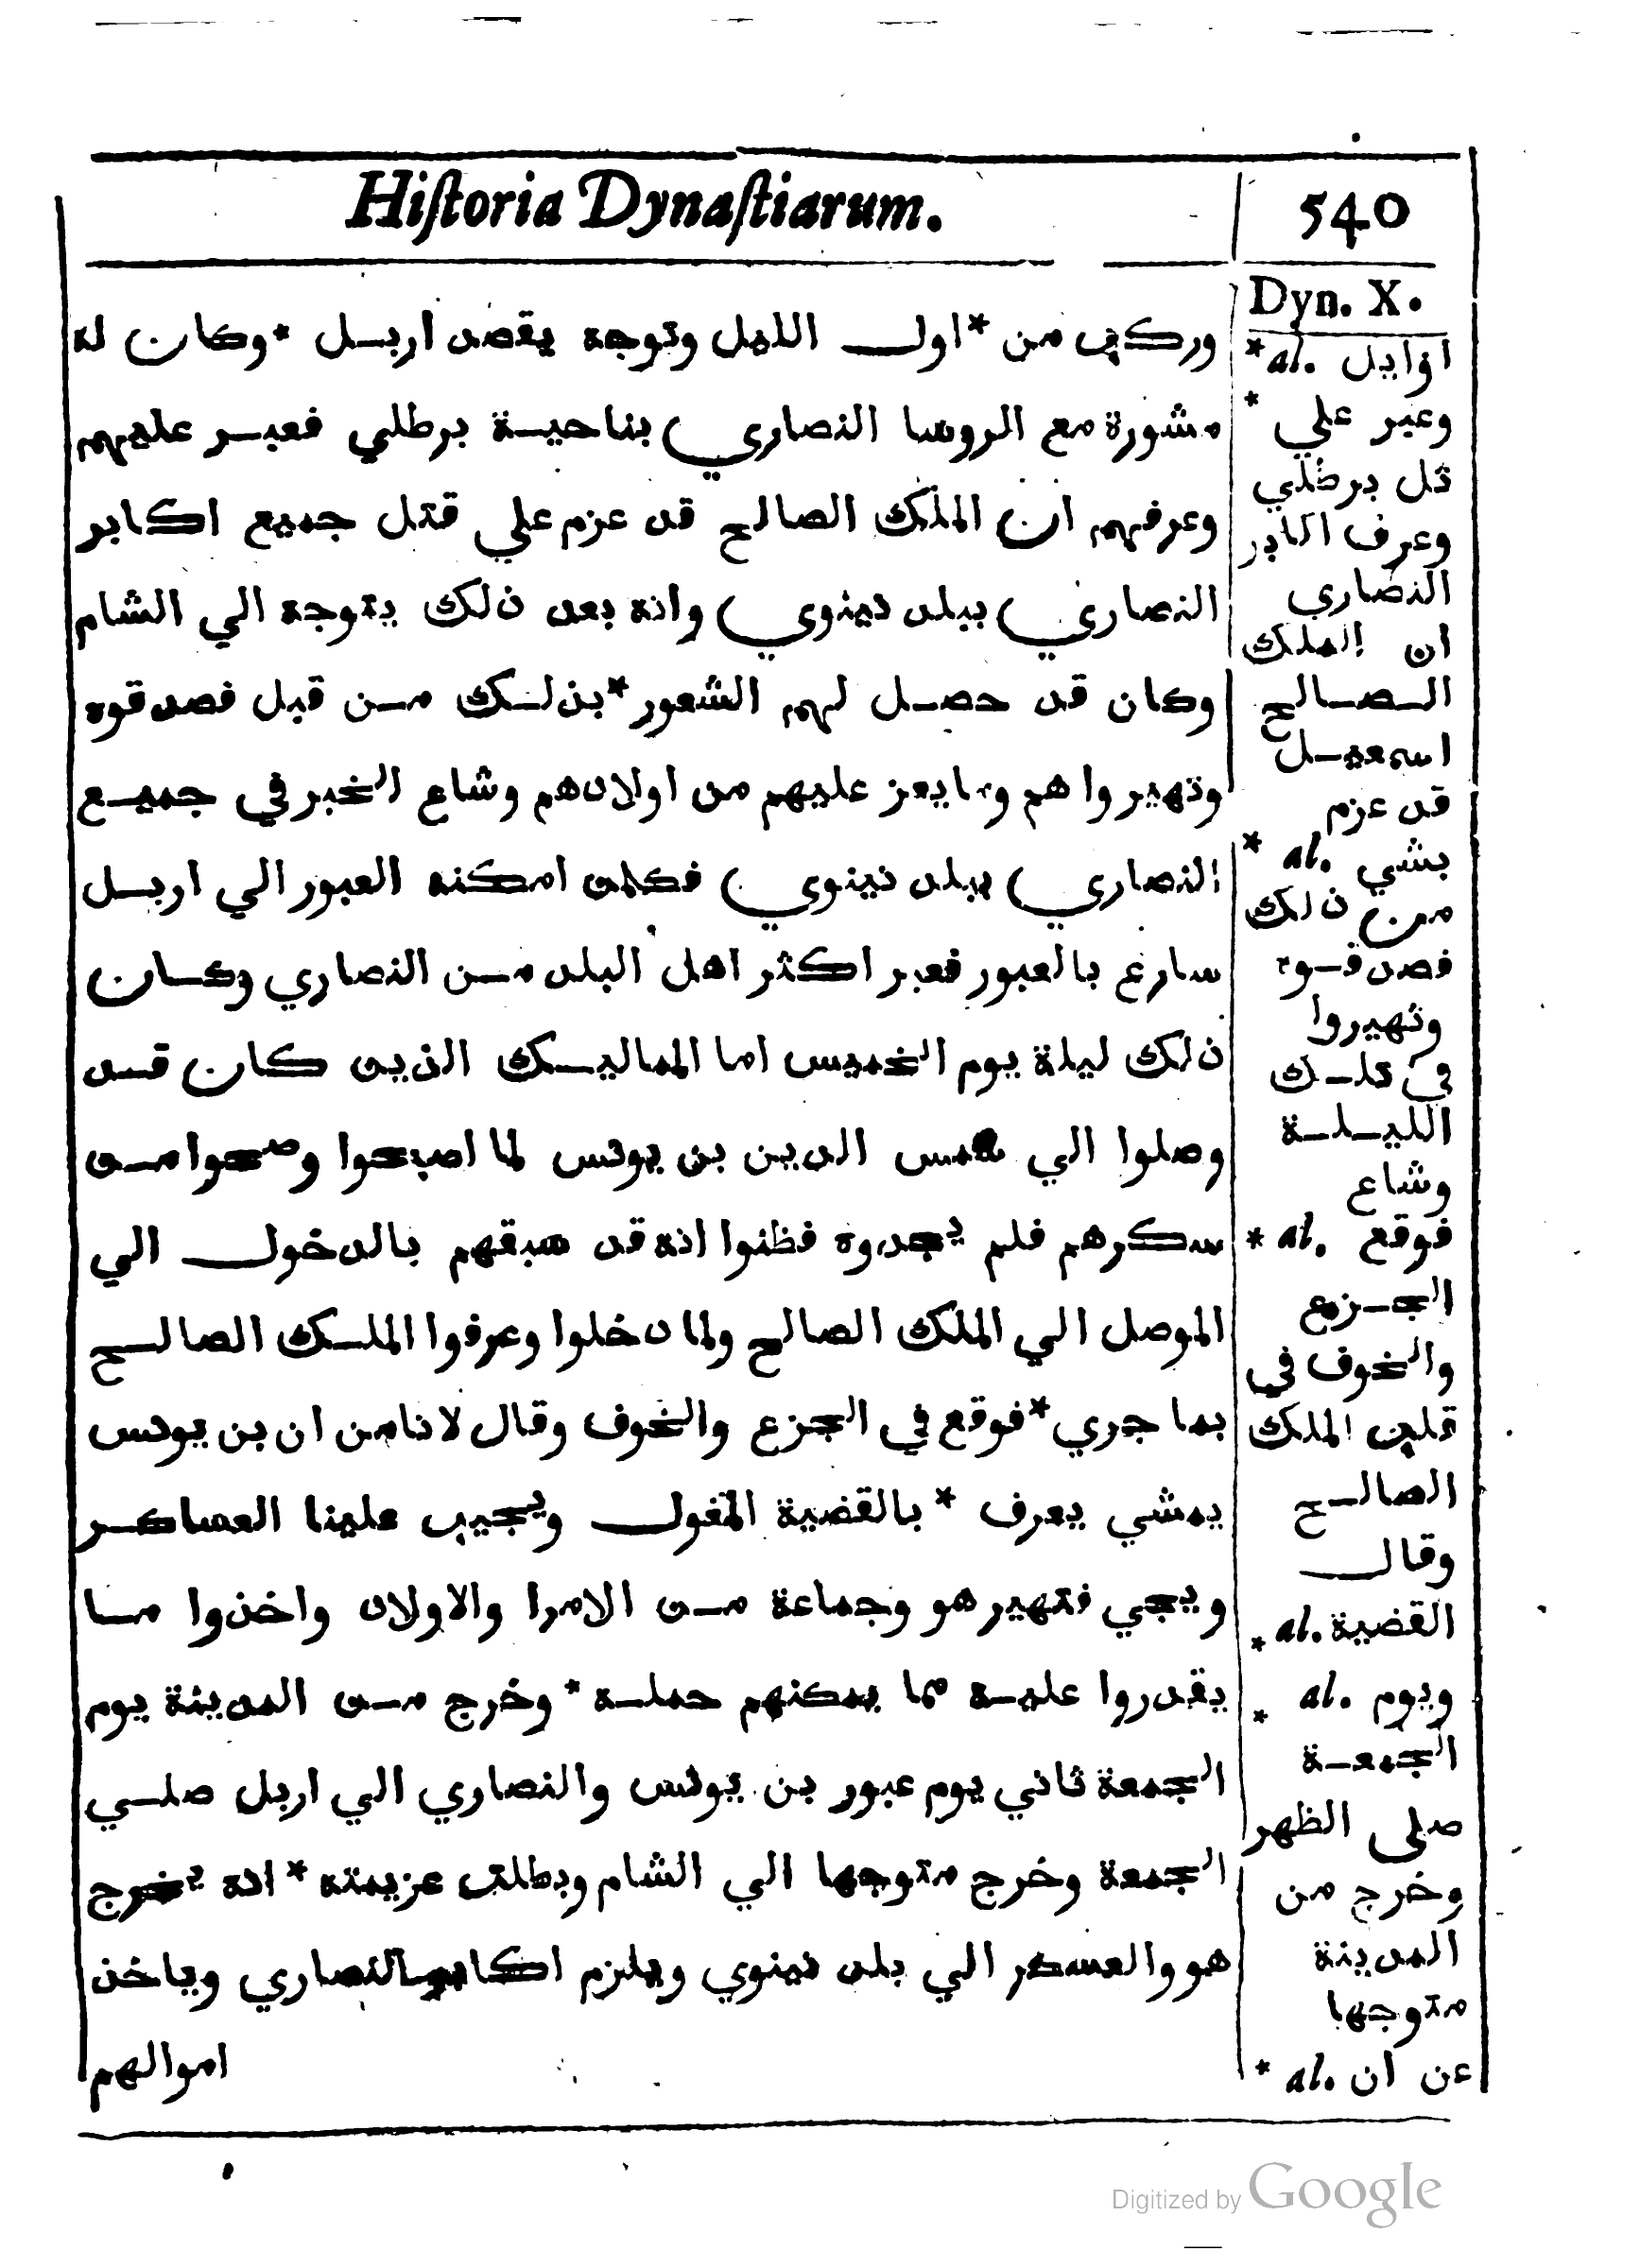 Historia Dynastiarum.
540
Dyn. X.
وركب من *اول الليل وتوجه يقصد اربل *وكان له
مشورة مع الروسا النصاري بناحية برطلي فعبر عليهم
وعرفهم ان الملك الصالح قد عزم علي قتل جميع اكابر
النصاري ببلد نينوي وانه بعد ذلك يتوجه الي الشام
وكان قد حصل لهم الشعور *بذلك من قبل فصدقوه
وتهيروا هم وما يعز عليهم من اولادهم وشاع الخبر في جميع
النصاري ببلد نينوي فكلمن امكنه العبور الي اربل
سارع بالعبور فعبر اكثر اهل البلد من النصاري وكان
ذلك ليلة يوم الخميس اما المماليك الذين كان قد
وصلوا الي شمس الدين بن يونس لما اصبحوا وصحوا من
سكرهم فلم يجدوه فظنوا انه قد سبقهم بالدخول الي
الموصل الي الملك الصالح ولما دخلوا وعرفوا الملك الصالح
بما جري *فوقع في الجزع والخوف وقال لا نامن ان بن يونس
يمشي يعرف *بالقضية المغول ويجيب علينا العساكر
ويجي فتهير هو وجماعة من الامرا والاولاد واخذوا ما
يقدروا عليه مما يمكنهم حمله *وخرج من المدينة يوم
الجمعة ثاني يوم عبور بن يونس والنصاري الي اربل صلي
الجمعة وخرج متوجها الي الشام وبطلت عزيمته *انه يخرج
هو والعسكر الي بلد نينوي ويلزم اكابر النصاري وياخذ
اموالهم
*al. اوايل
*وعبر علي
تل برطلي
وعرف اكابر
النصاري
ان الملك
الصالح
اسمعيل
قد عزم
*al. بشي
من ذلك
فصدقوه
وتهيروا
في تلك
الليلة
وشاع
*al. فوقع
الجزع
والخوف في
قلب الملك
الصالح
وقال
*al. القضية
*al. ويوم
الجمعة
صلي الظهر
وخرج من
المدينة
متوجها
*al. عن ان
Digitized by Google